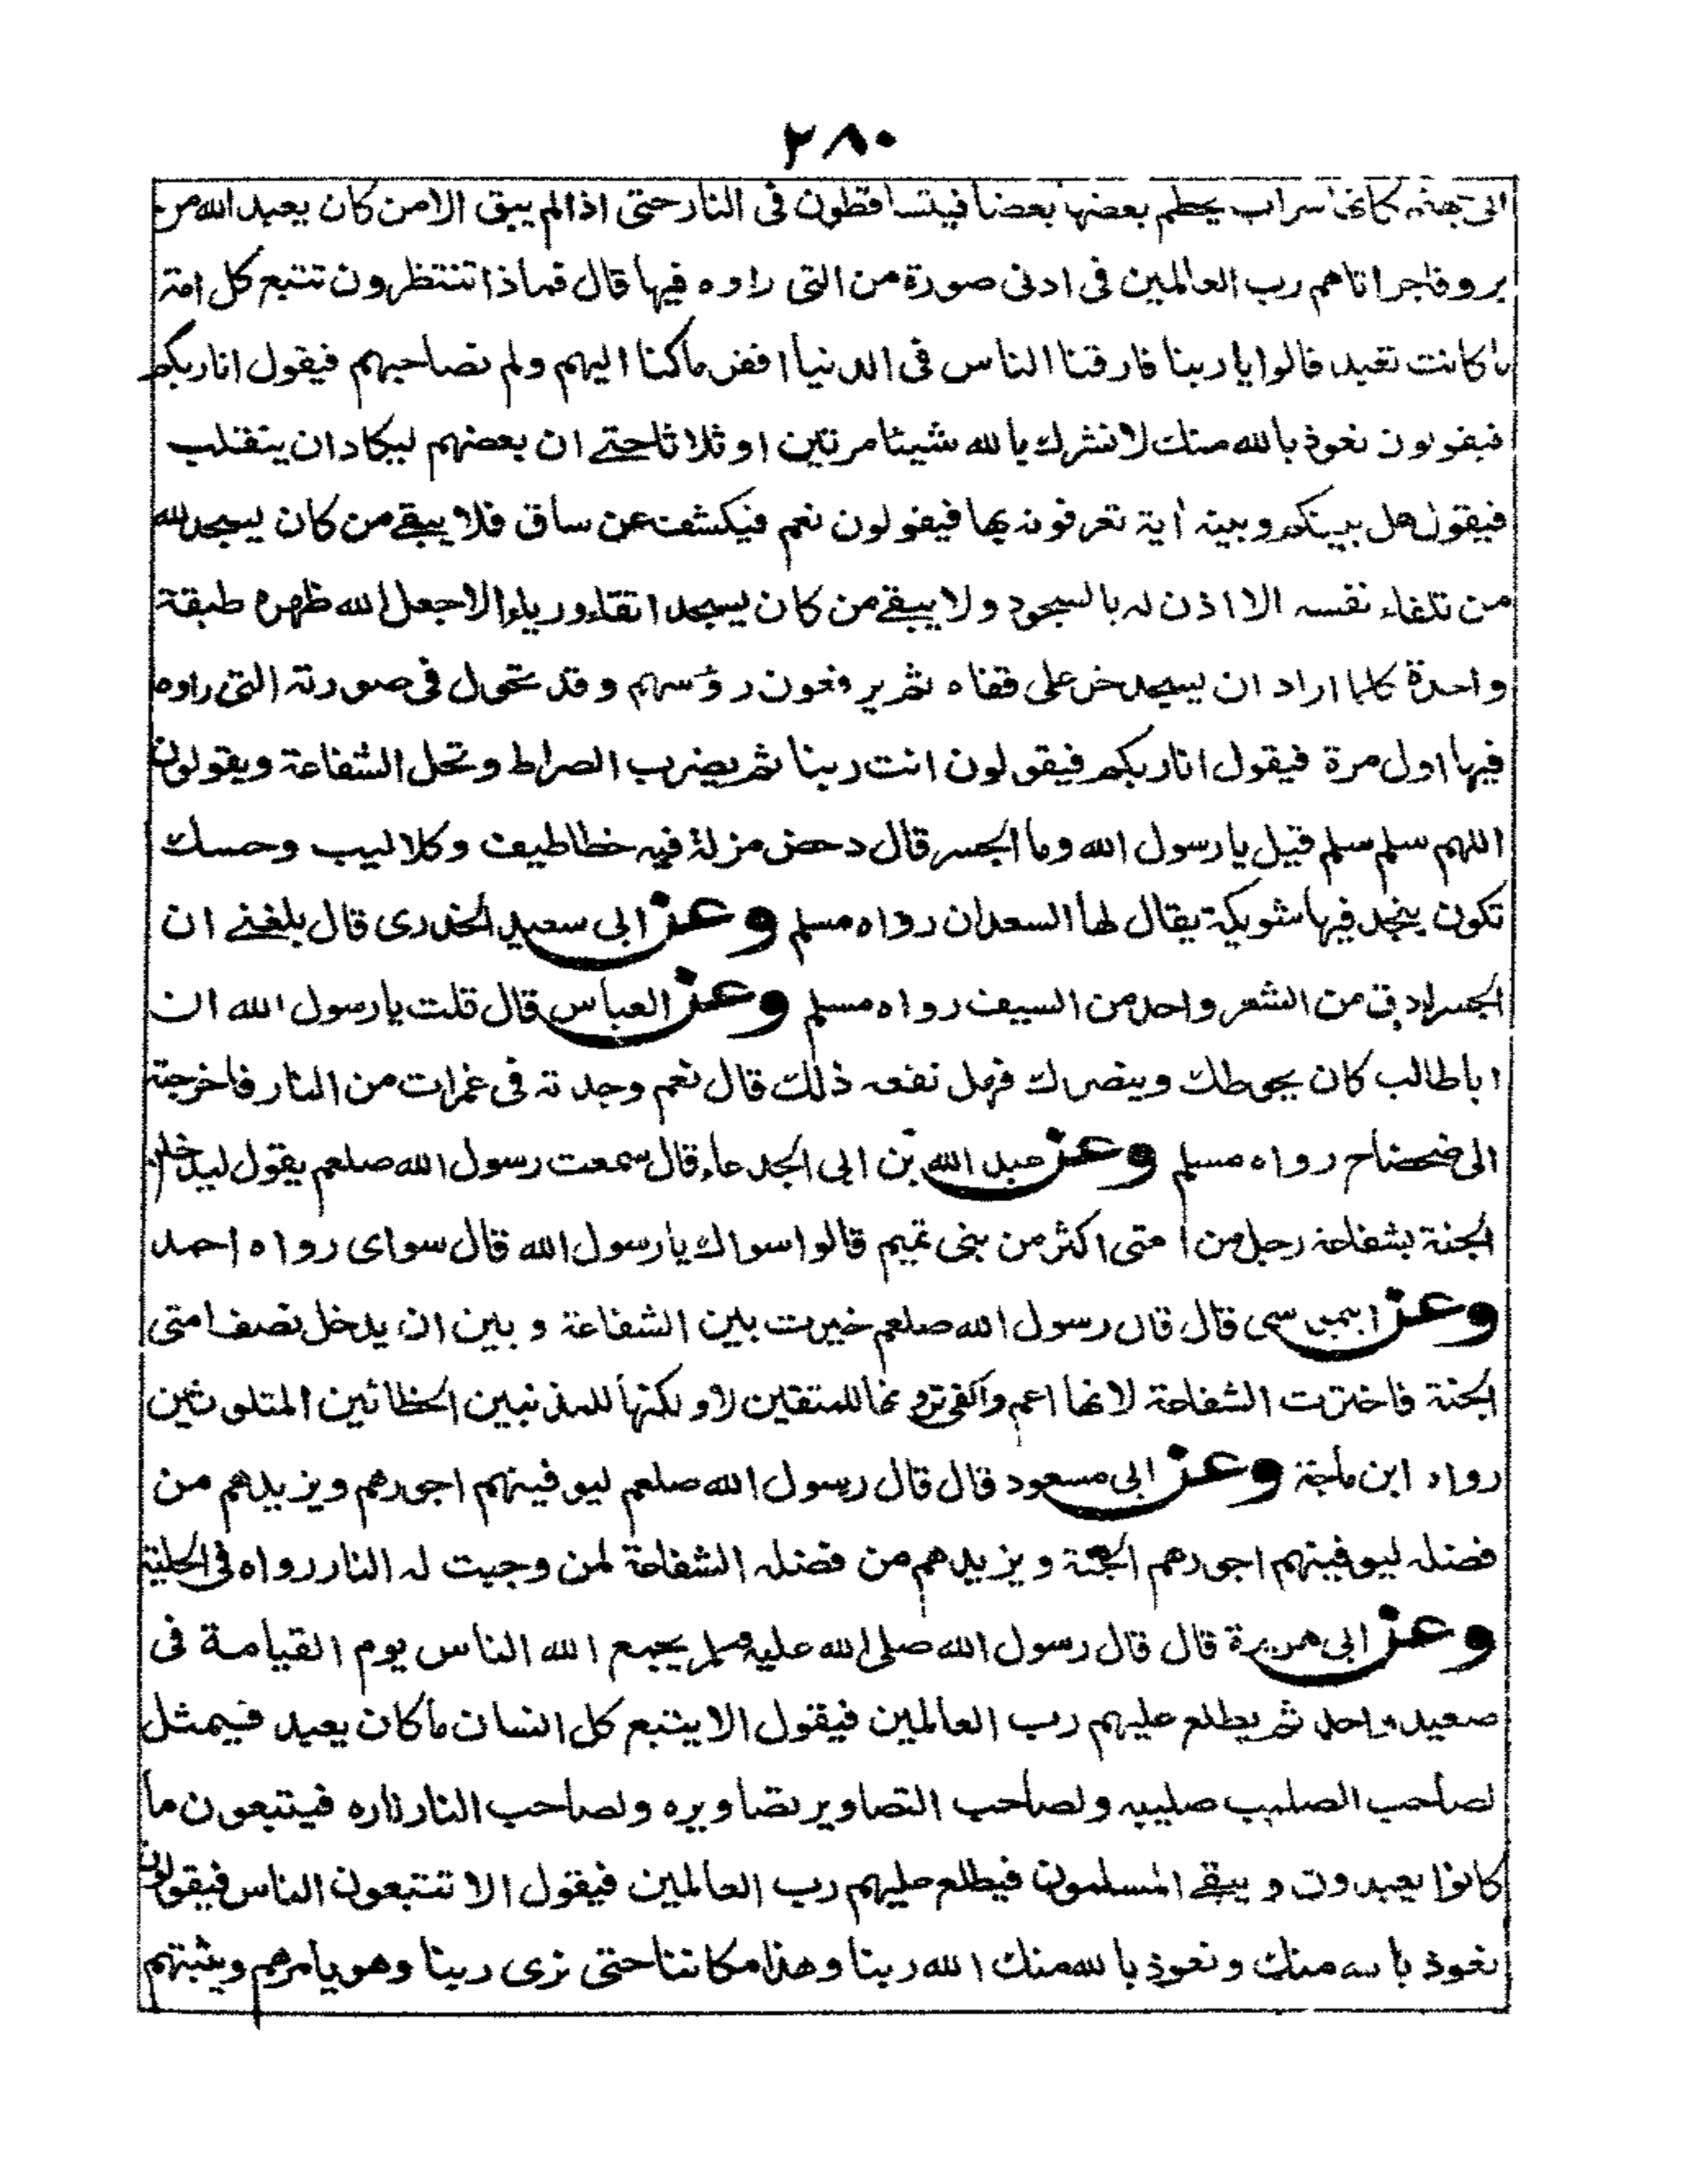 ٢٨٠
الى جهنم كانها سراب يحطم بعضها بعضا فيتساقطون فى النار حتى اذا لم يبق الا من كان يعبد الله من
بر و فاجر اتاهم رب العالمين فى ادنى صورة من التى راوه فيها قال فماذا تنتظرون تتبع كل امة
ما كانت تعبد قالوا يا ربنا فارقنا الناس فى الدنيا افقر ما كنا اليهم ولم نصاحبهم فيقول انا ربكم
فيقولون نعوذ بالله منك لا نشرك بالله شيئا مرتين او ثلاثا حتے ان بعضهم ليكاد ان ينقلب
فيقول هل بينكم وبينه أية تعرفونه بها فيقولون نعم فيكشف عن ساق فلا يبقے من كان يسجد لله
من تلقاء نفسه الا اذن له بالسجود ولا يبقے من كان يسجد اتقاء ورياء الا جعل الله ظهره طبقة
واحدة كلما اراد ان يسجد خر على قفاه ثم يرفعون رؤسهم وقد تحول فى صورته التى راوه
فيها اول مرة فيقول انا ربكم فيقولون انت ربنا ثم يضرب الصراط وتحل الشفاعة ويقولون
اللهم سلم سلم قيل يا رسول الله وما الجسر قال دحض مزلة فيه خطاطيف وكلاليب وحسك
تكون بنجد فيها شويكة يقال لها السعدان رواه مسلم وعن ابى سعيد الخدرى قال بلغنے ان
الجسر ادق من الشعر واحد من السيف رواه مسلم وعن العباس قال قلت يا رسول الله ان
ابا طالب كان يحوطك وينصرك فهل نفعه ذلك قال نعم وجدته فى غمرات من النار فاخرجته
الى ضحضاح رواه مسلم وعن عبد الله بن ابى الجدعاء قال سمعت رسول الله صلعم يقول ليدخلن
الجنة بشفاعة رجل من امتى اكثر من بنى تميم قالوا سواك يا رسول الله قال سواى رواه احمد
وعن ابى موسى قال قال رسول الله صلعم خيرت بين الشفاعة وبين ان يدخل نصف امتى
الجنة فاخترت الشفاعة لانها اعم واكفى ترونها للمتقين لا ولكنها للمذنبين الخطائين المتلوثين
رواه ابن ماجة وعن ابى مسعود قال قال رسول الله صلعم ليوفينهم اجورهم ويزيدهم من
فضله ليوفينهم اجورهم الجنة ويزيدهم من فضله الشفاعة لمن وجبت له النار رواه فى الحلية
وعن ابى هريرة قال قال رسول الله صلى الله عليه وسلم يجمع الله الناس يوم القيامة فى
صعيد واحد ثم يطلع عليهم رب العالمين فيقول الا يتبع كل انسان ما كان يعبد فيمثل
لصاحب الصليب صليبه ولصاحب التصاوير تصاويره ولصاحب النار ناره فيتبعون ما
كانوا يعبدون ويبقے المسلمون فيطلع عليهم رب العالمين فيقول الا تتبعون الناس فيقولون
نعوذ بالله منك ونعوذ بالله منك الله ربنا وهذا مكاننا حتى نرى ربنا وهو يامرهم ويثبتهم